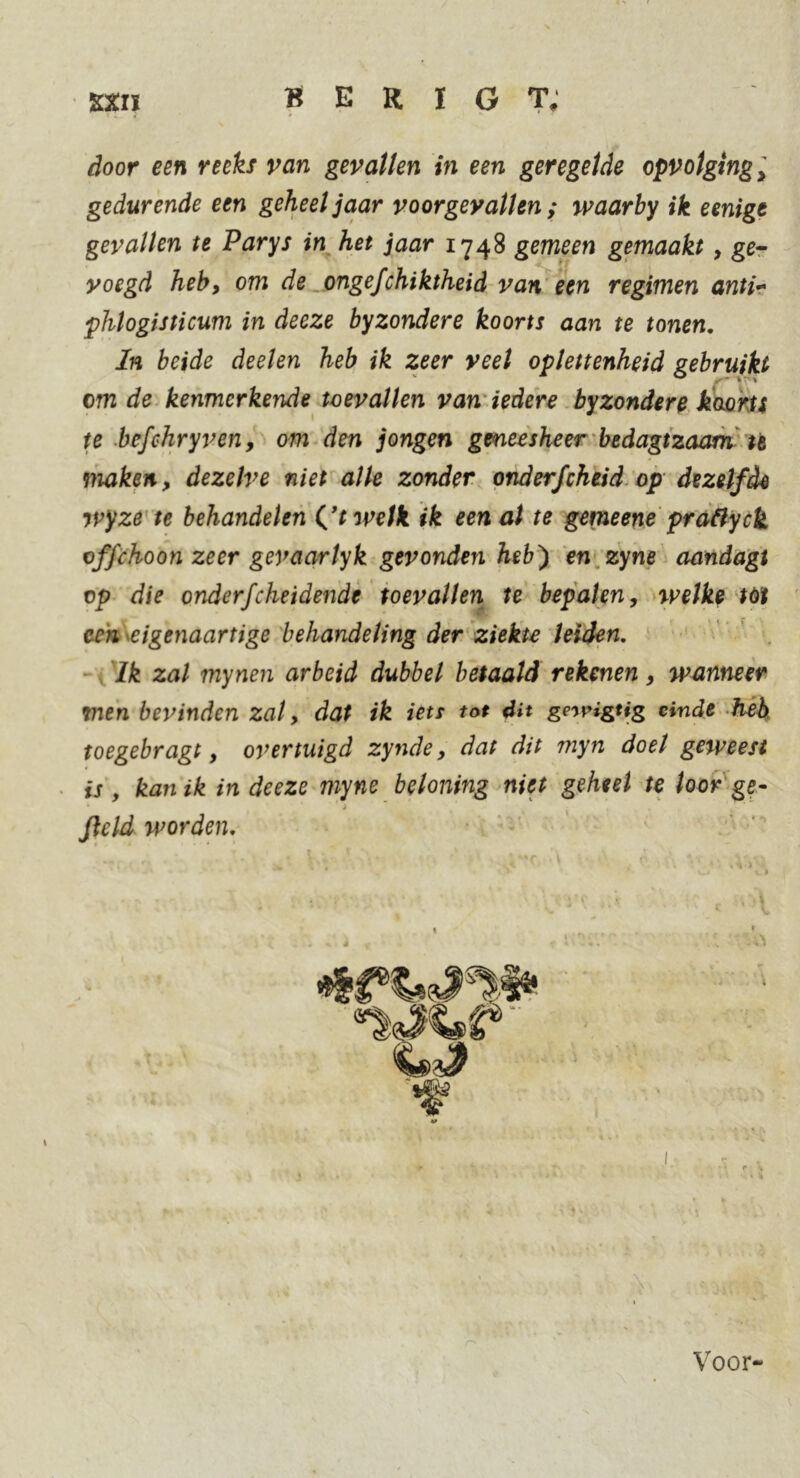 XXII BERIGT.
door een reeks van gevallen in een geregelde opvolging,
gedurende een geheel jaar voorgevallen; waarby ik eenige
gevallen te Parys in het jaar 1748 gemeen gemaakt, ge-
voegd heb, om de ongeſchiktheid van een regimen anti-
phlogisticum in deeze byzondere koorts aan te tonen.
In beide deelen heb ik zeer veel oplettenheid gebruikt
om de kenmerkende toevallen van iedere byzondere koorts
te beſchryven, om den jongen geneesheer bedagtzaam te
maken, dezelve niet alle zonder onderſcheid op dezelfde
wyze te behandelen ('t welk ik een al te gemeene practyck
offchoon zeer gevaarlyk gevonden heb) en zyne aandagt
op die onderſcheidende toevallen te bepalen, welke tot
een eigenaartige behandeling der ziekte leiden.
Ik zal mynen arbeid dubbel betaald rekenen, wanneer
men bevinden zal, dat ik iets tot dit gewigtig einde heb
toegebragt, overtuigd zynde, dat dit myn doel geweest
is, kan ik in deeze myne beloning niet geheel te loor ge-
ſteld worden.
Voor-